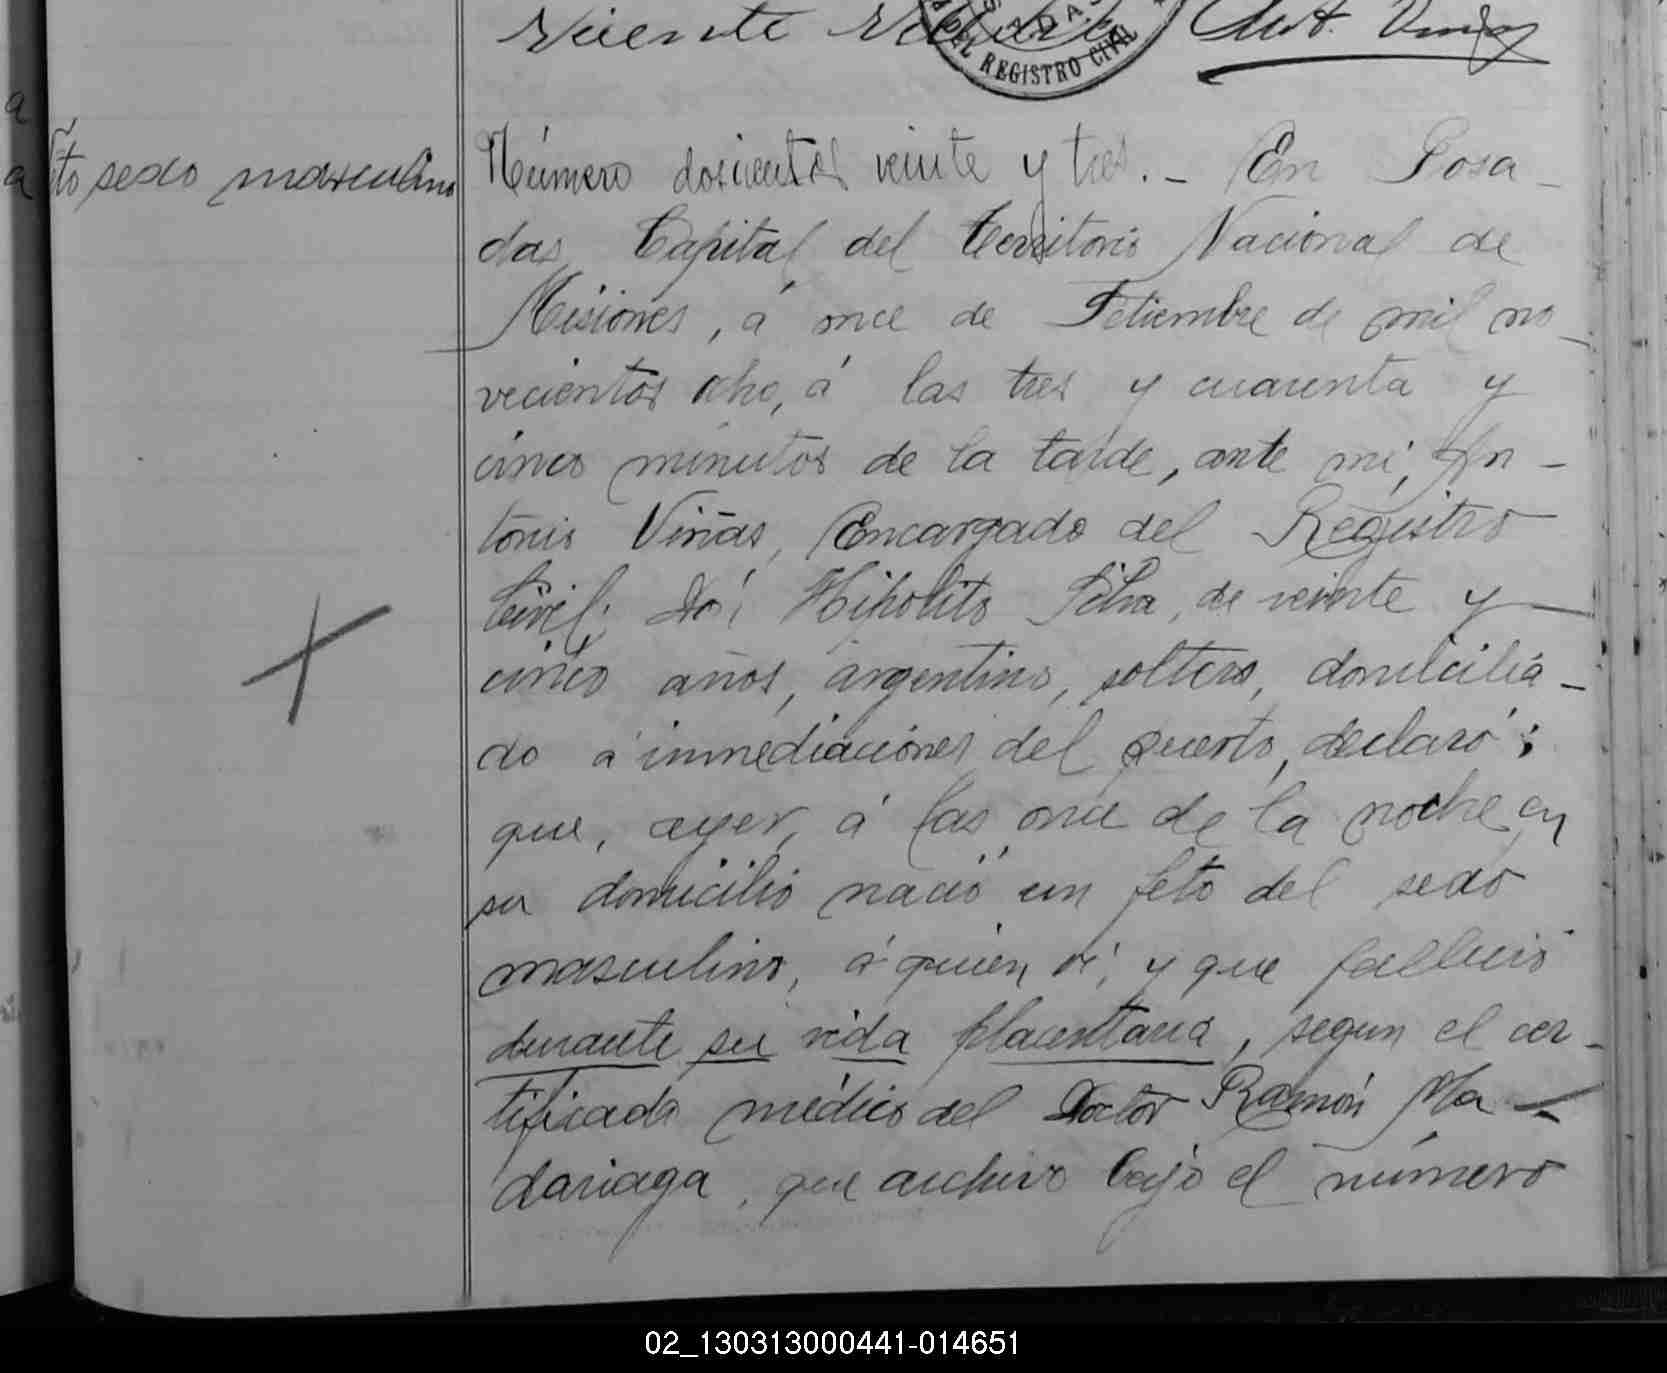 Vicente
Ant. Viñas
DEL REGISTRO CIVIL
a
a
to sexo masculino
Número doscientos veinte y tres.- En Posa-
das, Capital del Territorio Nacional de
Misiones, á once de Setiembre de mil no-
vecientos ocho, á las tres y cuarenta y
cinco minutos de la tarde, ante mí, An-
tonio Viñas, Encargado del Registro
Civil; Hipólito Silva, de veinte y
cinco años, argentino, soltero, domicilia-
do á inmediaciones del puerto, declaró:
que, ayer, á las once de la noche, en
su domicilio nació un feto del sexo
masculino, á quien ví, y que falleció
durante su vida placentaria, segun el cer-
tificado médico del Doctor Ramón Ma-
dariaga, que archivo bajo el número
02_130313000441-014651